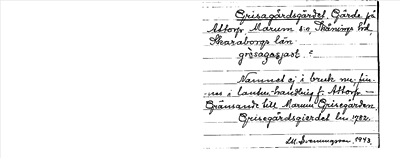 Grisagårdsgärdet. Gärde på
Attorp Marum s:n, Skånings hd,
Skaraborgs län.
grisagasjast ?
Namnet ej i bruk nu; fin-
nes i lantm.-handling f. Attorp —
Gränsande till Marum Grisegården.
Grisegårdsgierdet lm 1782.
1943.